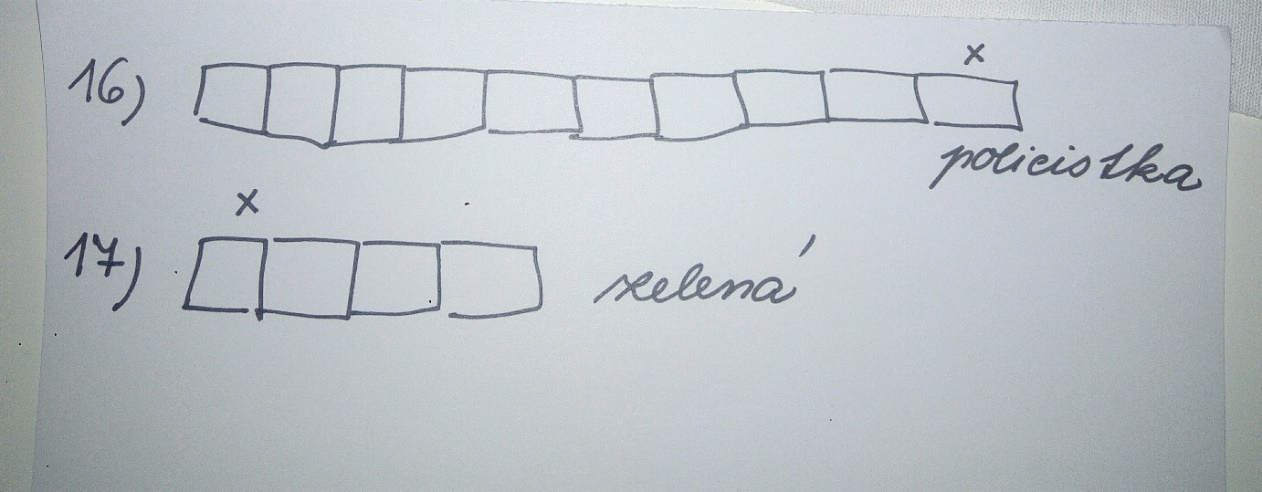 16)
x
policistka
x
17) zelená